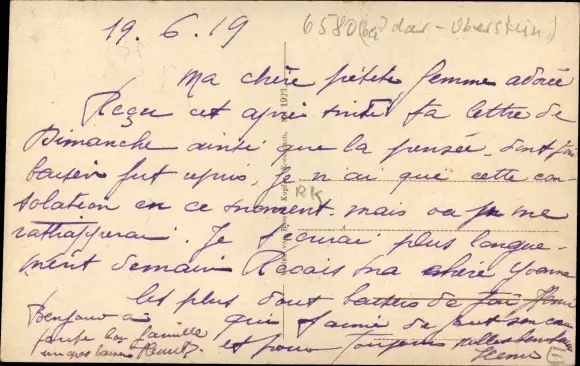 19.6.19
6580 Idar-Oberstein
Ma chère petite femme adorée
Reçu cet après midi ta lettre de
Dimanche ainsi que la pensée dont j'ai
baiser fut repris, je n'ai que cette con
solation en ce moment. mais va je me
rattrapperai. Je t'écrirai plus longue-
ment demain Recois ma chère Yvonne
les plus doux baisers de ton Henri
qui t'aime de tout son cœur
et pour toujours milles tendresses
Henri
Bonjour à
toute la famille
un gros baiser
RK